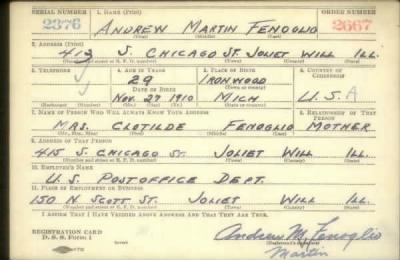 SERIAL NUMBER 1. NAME (Print) ORDER NUMBER
2376 ANDREW MARTIN FENOGLIO 2667
(First) (Middle) (Last)
2. ADDRESS (Print)
413 S. CHICAGO ST. JOLIET WILL ILL.
(Number and street or R. F. D. number) (Town) (County) (State)
3. TELEPHONE 4. AGE IN YEARS 5. PLACE OF BIRTH 6. COUNTRY OF CITIZENSHIP
29 IRONWOOD
DATE OF BIRTH (Town or county)
NOV. 27 1910 MICH U.S.A
(Exchange) (Number) (Mo.) (Day) (Yr.) (State or country)
7. NAME OF PERSON WHO WILL ALWAYS KNOW YOUR ADDRESS 8. RELATIONSHIP OF THAT PERSON
MRS. CLOTILDE FENOGLIO MOTHER
(Mr., Mrs., Miss) (First) (Middle) (Last)
9. ADDRESS OF THAT PERSON
415 S. CHICAGO ST. JOLIET WILL ILL.
(Number and street or R. F. D. number) (Town) (County) (State)
10. EMPLOYER'S NAME
U.S. POSTOFFICE DEPT.
11. PLACE OF EMPLOYMENT OR BUSINESS
150 N. SCOTT ST. JOLIET WILL ILL.
(Number and street or R. F. D. number) (Town) (County) (State)
I AFFIRM THAT I HAVE VERIFIED ABOVE ANSWERS AND THAT THEY ARE TRUE.
REGISTRATION CARD
D. S. S. Form 1
Andrew M. Fenoglio
(Registrant's signature)
Martin